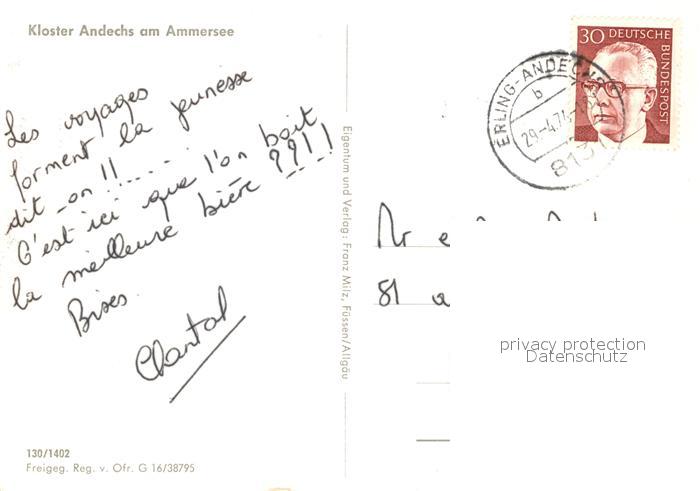 Kloster Andechs am Ammersee
Les voyages
forment la jeunesse
dit_on !!......
C'est ici que l'on boit
la meilleure bière ??!!
Bises
Chantal
130/1402
Freigeg. Reg. v. Ofr. G 16/38795
Eigentum und Verlag: Franz Milz, Füssen/Allgäu
30 DEUTSCHE
BUNDESPOST
ERLING-ANDECHS
b
29.-4.74
8131
Mr e
81 a
privacy protection
Datenschutz